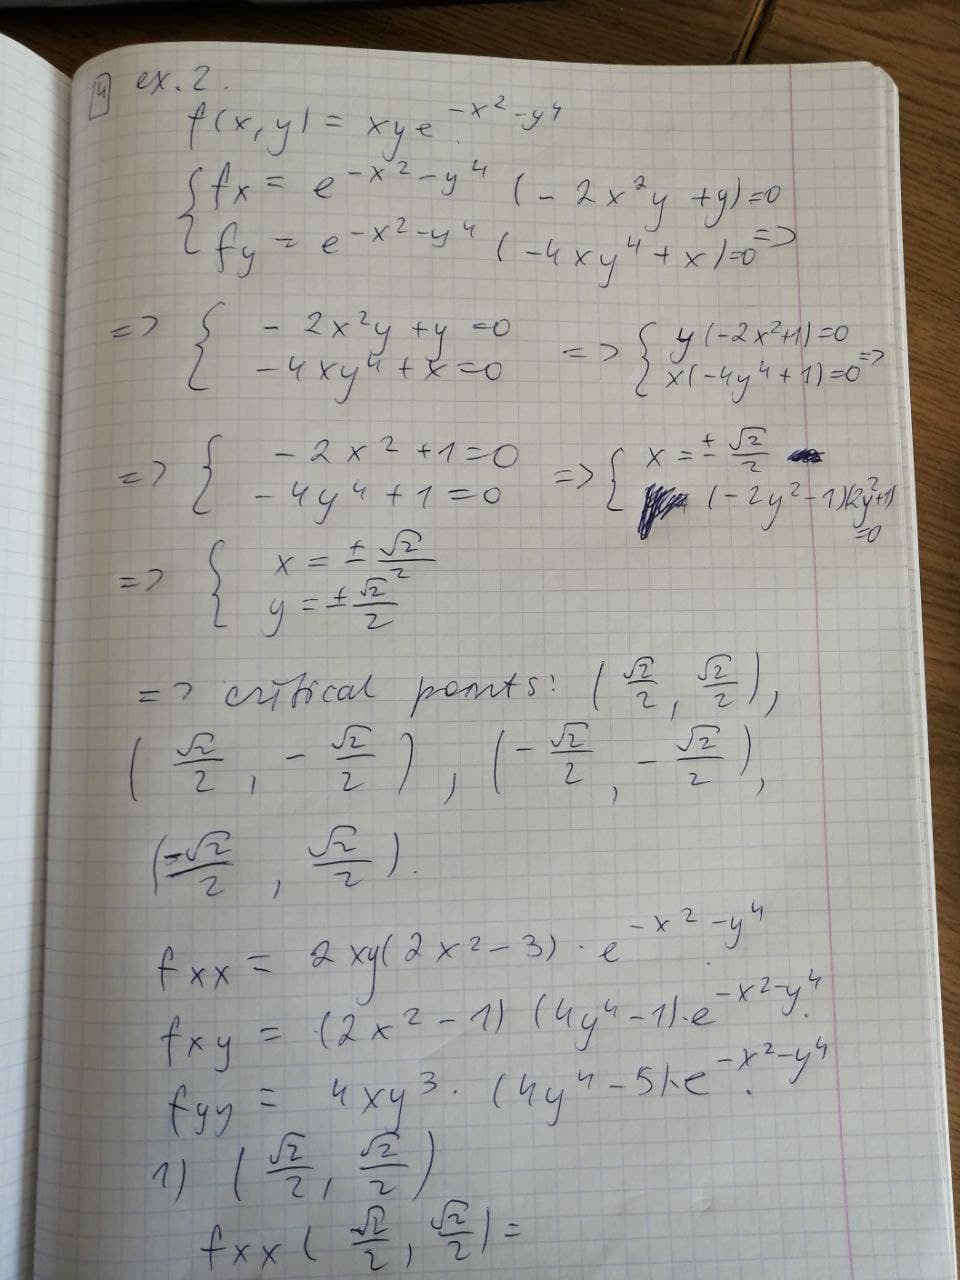 4 ex. 2.
f(x,y) = xye^{-x²-y⁴}
{ fx = e^{-x²-y⁴} (-2x²y +y)=0
{ fy = e^{-x²-y⁴} (-4xy⁴+x)=0 =>
=> { -2x²y+y=0 => { y(-2x²+1)=0
{ -4xy⁴+x=0 { x(-4y⁴+1)=0 =>
=> { -2x²+1=0 => { x = ± √2/2
{ -4y⁴+1=0 { (-2y²-1)(2y²+1) =0
=> { x = ± √2/2
{ y = ± √2/2
=> critical points: (√2/2, √2/2),
(√2/2, -√2/2), (-√2/2, -√2/2),
(-√2/2, √2/2).
fxx = 2xy(2x²-3)·e^{-x²-y⁴}
fxy = (2x²-1)(4y⁴-1)·e^{-x²-y⁴}.
fyy = 4xy³·(4y⁴-5)·e^{-x²-y⁴}.
1) (√2/2, √2/2)
fxx(√2/2, √2/2) =